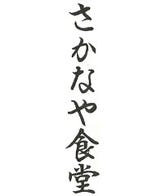 さかなや食堂